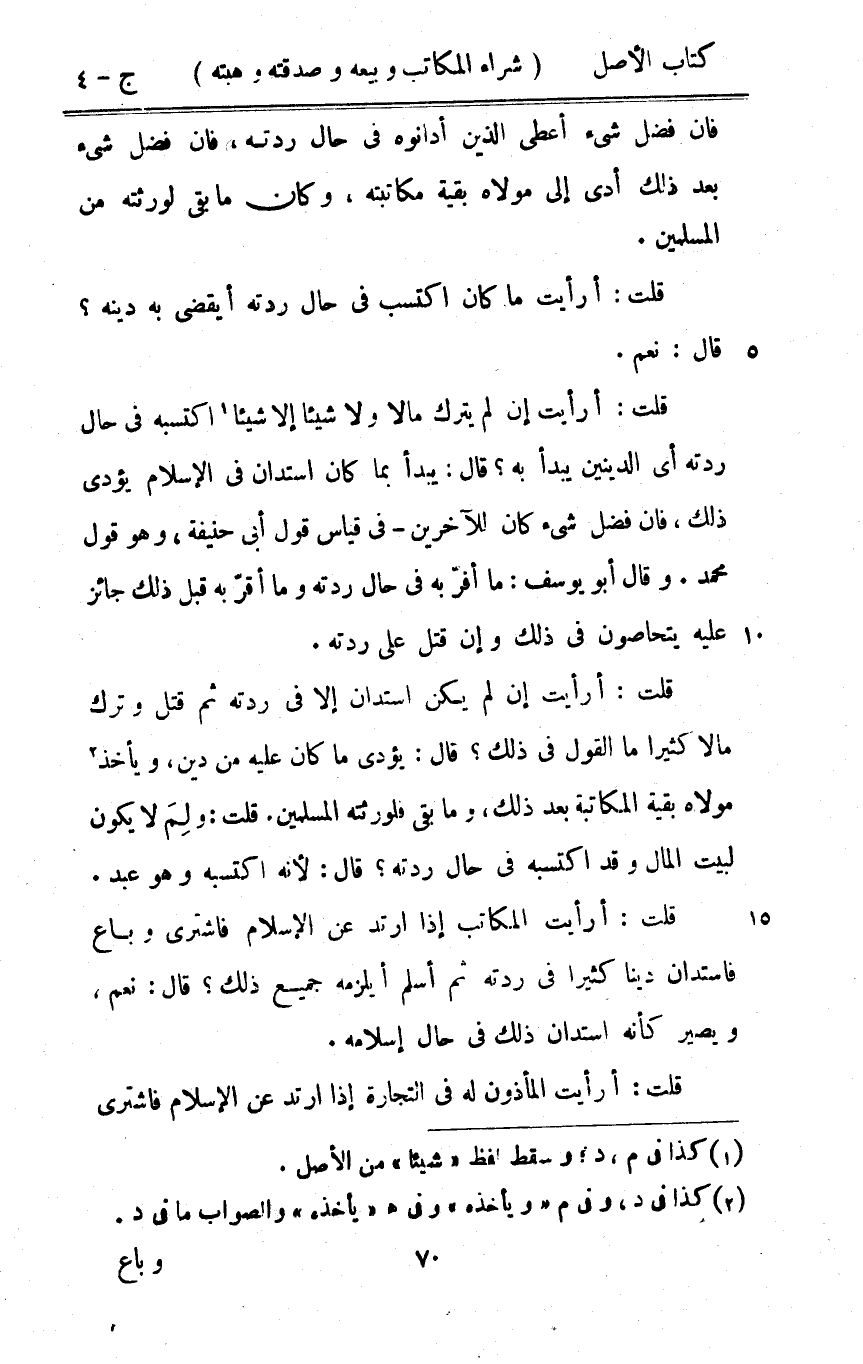 كتاب الأصل ( شراء المكاتب و بيعه و صدقته و هبته ) ج - ٤
فان فضل شىء أعطى الذين أدانوه فى حال ردته ، فان فضل شىء
بعد ذلك أدى إلى مولاه بقية مكاتبته ، و كان ما بقى لورثته من
المسلمين .
قلت : أ رأيت ما كان اكتسب فى حال ردته أ يقضى به دينه ؟
٥ قال : نعم .
قلت : أ رأيت إن لم يترك مالا و لا شيئا إلا شيئا١ اكتسبه فى حال
ردته أى الدينين يبدأ به ؟ قال : يبدأ بما كان استدان فى الإسلام يؤدى
ذلك ، فان فضل شىء كان للآخرين - فى قياس قول أبى حنيفة ، و هو قول
محمد . و قال أبو يوسف : ما أقرّ به فى حال ردته و ما أقرّ به قبل ذلك جائز
١٠ عليه يتحاصون فى ذلك و إن قتل على ردته .
قلت : أ رأيت إن لم يكن استدان إلا فى ردته ثم قتل و ترك
مالا كثيرا ما القول فى ذلك ؟ قال : يؤدى ما كان عليه من دين ، و يأخذ٢
مولاه بقية المكاتبة بعد ذلك ، و ما بقى فلورثته المسلمين . قلت : و لِمَ لا يكون
لبيت المال و قد اكتسبه فى حال ردته ؟ قال : لأنه اكتسبه و هو عبد .
١٥ قلت : أ رأيت المكاتب إذا ارتد عن الإسلام فاشترى و باع
فاستدان دينا كثيرا فى ردته ثم أسلم أ يلزمه جميع ذلك ؟ قال : نعم ،
و يصير كأنه استدان ذلك فى حال إسلامه .
قلت : أ رأيت المأذون له فى التجارة إذا ارتد عن الإسلام فاشترى
(١) كذا فى م ، د ؛ و سقط لفظ « شيئا » من الأصل .
(٢) كذا فى د ، و فى م « و يأخذه » و فى ه « يأخذه » والصواب ما فى د .
٧٠ و باع